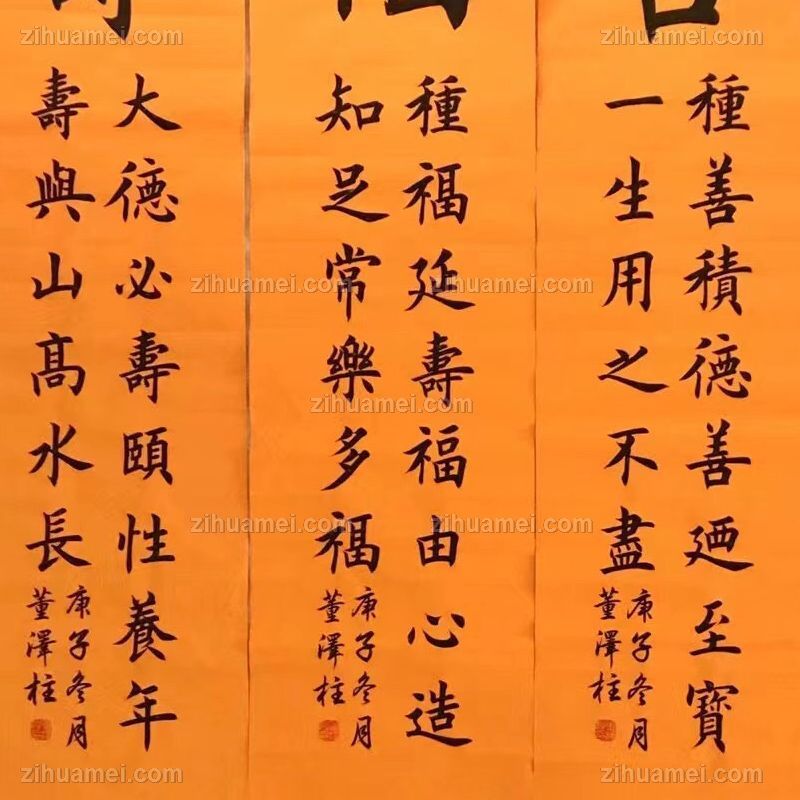 種善積德善廼至寶
一生用之不盡
庚子冬月
董澤柱
種福延壽福由心造
知足常樂多福
庚子冬月
董澤柱
大德必壽頤性養年
壽與山高水長
庚子冬月
董澤柱
zihuamei.com
zihuamei.com
zihuamei.com
zihuamei.com
zihuamei.com
zihuamei.com
zihuamei.com
zihuamei.com
zihuamei.com
zihuamei.com
zihuamei.com